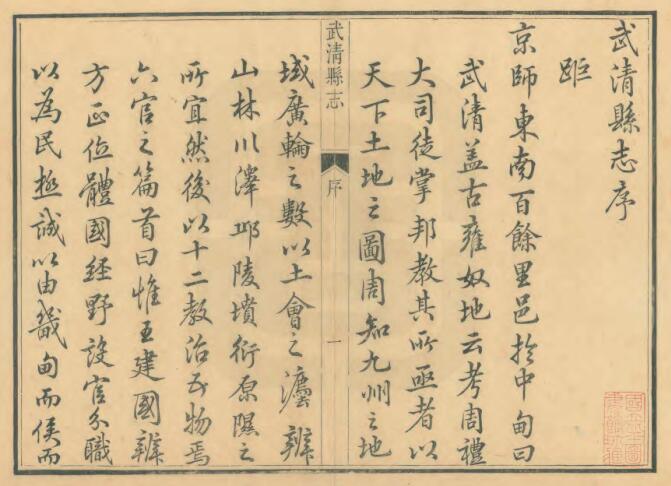 武清縣志序
距
京師東南百餘里邑於中甸曰
武清盖古雍奴地云考周禮
大司徒掌邦教其所亟者以
天下土地之圖周知九州之地
武清縣志
序
一
域廣輪之數以土會之灋辨
山林川澤邱陵墳衍原隰之
所宜然後以十二教治五物焉
六官之篇首曰惟王建國辨
方正位體國經野設官分職
以為民極誠以由畿甸而侯而